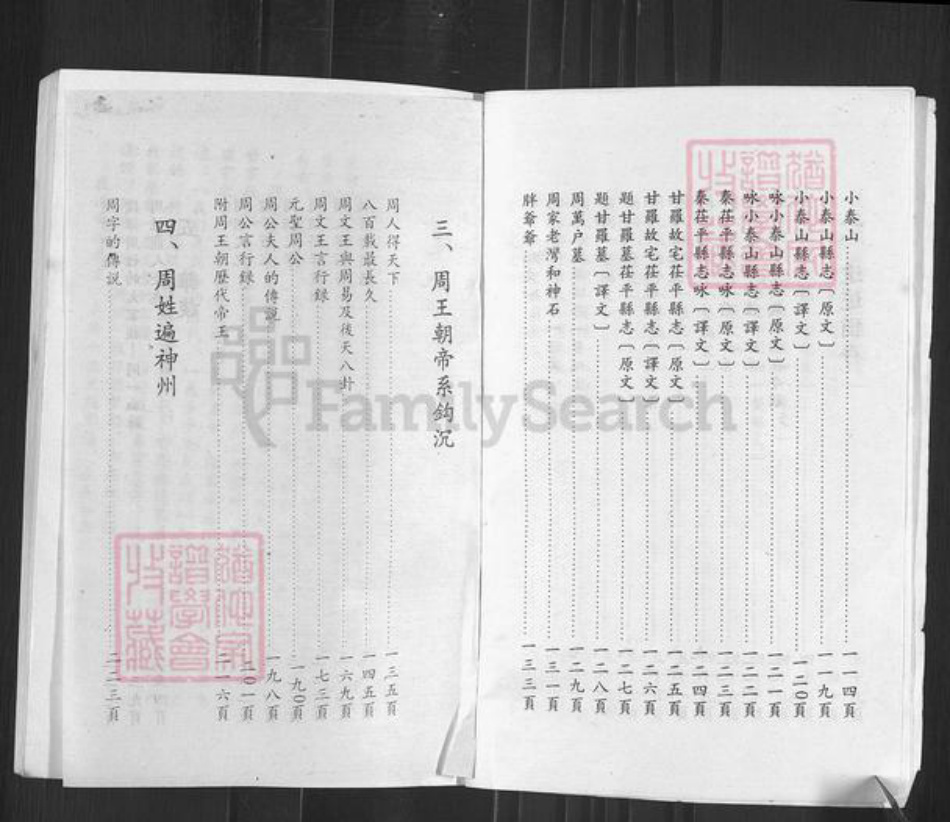 小泰山……一一四頁
小泰山縣志〔原文〕……一一九頁
小泰山縣志〔譯文〕……一二〇頁
咏小泰山縣志〔原文〕……一二一頁
咏小泰山縣志〔譯文〕……一二二頁
秦茌平縣志咏〔原文〕……一二三頁
秦茌平縣志咏〔譯文〕……一二四頁
甘羅故宅茌平縣志〔原文〕……一二五頁
甘羅故宅茌平縣志〔譯文〕……一二六頁
題甘羅墓茌平縣志〔原文〕……一二七頁
題甘羅墓〔譯文〕……一二八頁
周萬户墓……一二九頁
周家老灣和神石……一三一頁
胖爺爺……一三三頁
三、周王朝帝系鈎沉
周人得天下……一三五頁
八百載最長久……一四五頁
周文王與周易及後天八卦……一六九頁
周文王言行録……一七三頁
元聖周公……一九〇頁
周公夫人的傳説……一九八頁
周公言行録……二〇一頁
附周王朝歷代帝王……二一六頁
四、周姓遍神州
周字的傳説……二二三頁
FamilySearch
譜學會
收藏